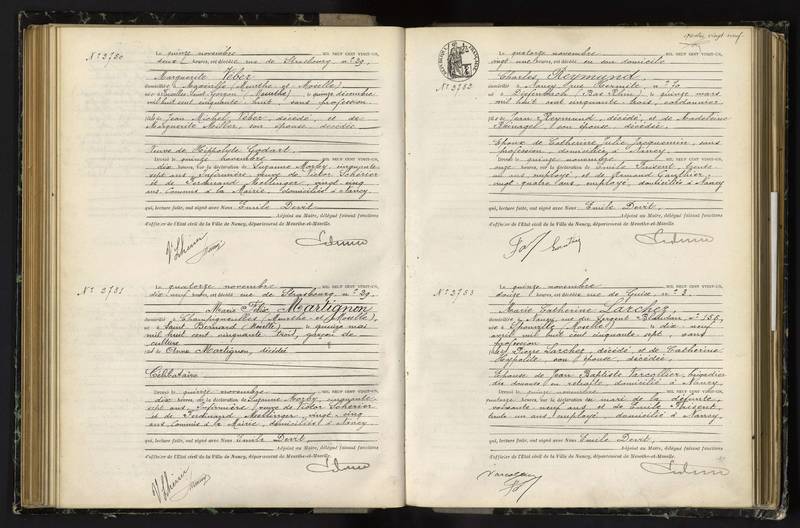 quatre vingt neuf
N° 2750
Le quinze novembre MIL NEUF CENT VINGT-UN,
deux heures, est décédé rue de Strasbourg, n° 29,
Marguerite Veber
domiciliée à Maxéville (Meurthe et Moselle)
(Meurthe) le quinze décembre
mil huit cent cinquante huit, sans profession
Jean Michel Veber, décédé, et de
Marguerite son épouse décédée
Veuve de Hippolyte Godart.
Dressé le quinze novembre MIL NEUF CENT VINGT-UN,
dix heures, sur la déclaration de Suzanne Morby, cinquante
sept ans, infirmière, veuve de Victor Schérier
et de Ferdinand Mellinger, vingt cinq
ans, commis à la Mairie, domiciliés à Nancy
qui, lecture faite, ont signé avec Nous Emile Devit,
Adjoint au Maire, délégué faisant fonctions
d'officier de l'Etat civil de la Ville de Nancy, département de Meurthe-et-Moselle.
N° 2751
Le quatorze novembre MIL NEUF CENT VINGT-UN,
dix neuf heures, est décédé rue de Strasbourg, n° 29,
Marie Félix Martignon
domicilié à Champigneulles (Meurthe et Moselle),
né à Saint Bernard (Moselle) le quinze mai
mil huit cent cinquante huit, garçon de
culture
Martignon, décédée
Célibataire
Dressé le quinze novembre MIL NEUF CENT VINGT-UN,
dix heures, sur la déclaration de Suzanne Morby, cinquante
sept ans, infirmière, veuve de Victor Schérier
et de Ferdinand Mellinger, vingt cinq
ans, commis à la Mairie, domiciliés à Nancy
qui, lecture faite, ont signé avec Nous Emile Devit
Adjoint au Maire, délégué faisant fonctions
d'officier de l'Etat civil de la Ville de Nancy, département de Meurthe-et-Moselle.
N° 2752
Le quatorze novembre MIL NEUF CENT VINGT-UN,
vingt une heures, est décédé en son domicile
Charles Reymund,
domicilié à Nancy, rue n° 70
né à Diefenbach (Bas Rhin) le quinze mars
mil huit cent cinquante trois, cordonnier
fils de Jean Reymund, décédé, et de Madeleine
son épouse, décédée.
Epoux de Catherine Julie Jacquemin, sans
profession, domiciliée à Nancy
Dressé le quinze novembre MIL NEUF CENT VINGT-UN,
onze heures, sur la déclaration de Emile Faisent, trente
un ans, employé, et de Armand Gauthier,
vingt quatre ans, employé, domiciliés à Nancy
qui, lecture faite, ont signé avec Nous Emile Devit,
Adjoint au Maire, délégué faisant fonctions
d'officier de l'Etat civil de la Ville de Nancy, département de Meurthe-et-Moselle.
N° 2753
Le quinze novembre MIL NEUF CENT VINGT-UN,
heures, est décédée rue de Guise, n° 3,
Marie Catherine Larchez
domiciliée à Nancy, rue du Sergent Blandan, n° 156,
(Moselle) le dix neuf
avril mil huit cent cinquante sept, sans
profession
Pierre Larchez, décédé, et de Catherine
son épouse, décédée.
Epouse de Jean Baptiste Varcollier, brigadier
des douanes en retraite, domicilié à Nancy.
Dressé le quinze novembre MIL NEUF CENT VINGT-UN,
heures, sur la déclaration du mari de la défunte,
soixante neuf ans et de Emile Faisent,
trente un ans, employé, domiciliés à Nancy
qui, lecture faite, ont signé avec Nous Emile Devit,
Adjoint au Maire, délégué faisant fonctions
d'officier de l'Etat civil de la Ville de Nancy, département de Meurthe-et-Moselle.